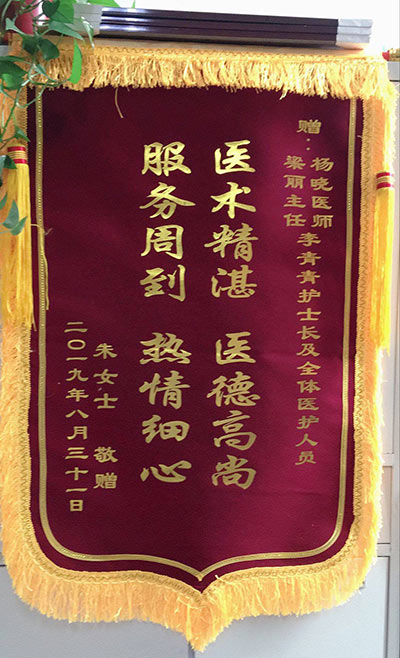 赠：杨晓医师
梁丽主任 李青青护士长及全体医护人员
医术精湛 医德高尚
服务周到 热情细心
朱女士 敬赠
二〇一九年八月三十一日